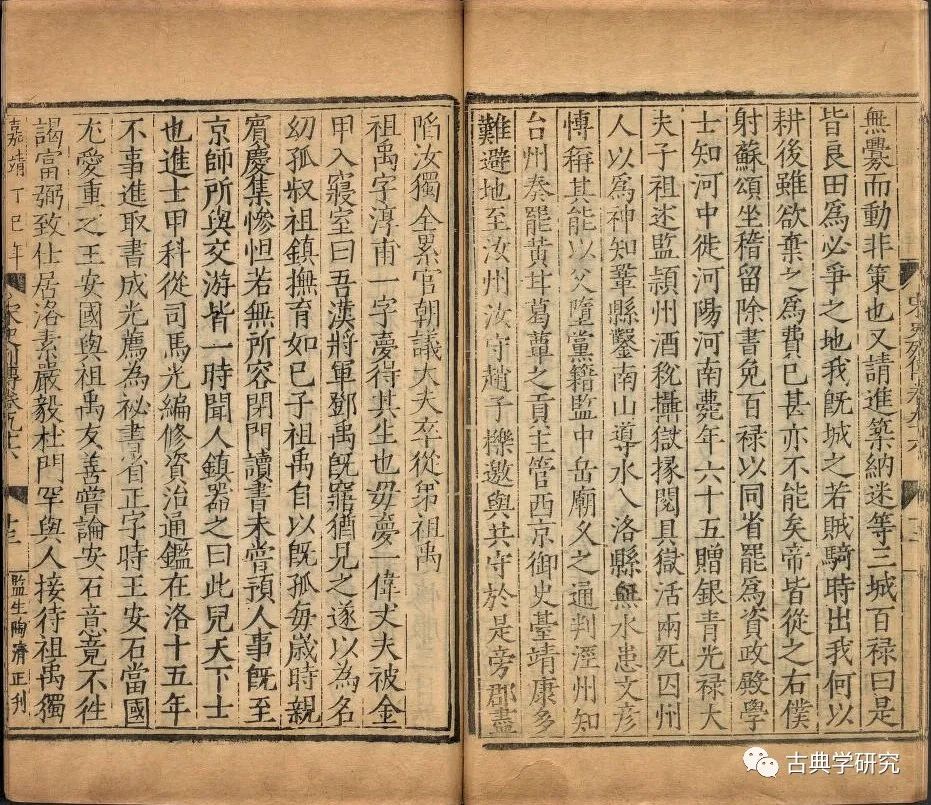 無釁而動非策也又請進築納迷等三城百禄曰是
皆良田爲必爭之地我既城之若賊騎時出我何以
耕後雖欲棄之爲費已甚亦不能矣帝皆從之右僕
射蘇頌坐稽留除書免百禄以同省罷爲資政殿學
士知河中徙河陽河南薨年六十五贈銀青光禄大
夫子祖述監潁州酒稅攝獄掾閱具獄活兩死囚州
人以爲神知鞏縣鑿南山導水入洛縣無水患文彦
博稱其能以父墮黨籍監中岳廟久之通判涇州知
台州奏罷黄甘葛蕈之貢主管西京御史臺靖康多
難避地至汝州汝守趙子櫟邀與共守於是旁郡盡
陷汝獨全累官朝議大夫卒從弟祖禹
祖禹字淳甫一字夢得其生也母夢一偉丈夫被金
甲入寢室曰吾漢將軍鄧禹既寤猶見之遂以為名
幼孤叔祖鎮撫育如已子祖禹自以既孤每歲時親
賓慶集慘怛若無所容閉門讀書未嘗預人事既至
京師所與交游皆一時聞人鎮器之曰此兒天下士
也進士甲科從司馬光編修資治通鑑在洛十五年
不事進取書成光薦為祕書省正字時王安石當國
尤愛重之王安國與祖禹友善嘗論安石意竟不徃
謁富弼致仕居洛素嚴毅杜門罕與人接待祖禹獨
嘉靖丁巳年
宋史列傳卷九十六
十三
監生陶濟正刊
古典学研究